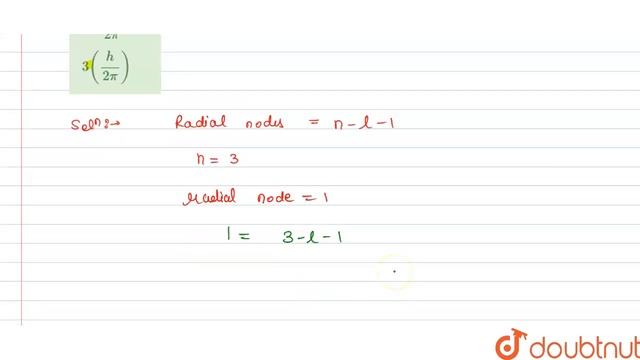 2π
3(h/2π)
Solⁿ:→ Radial nodes = n-l-1
n = 3
Radial node = 1
1 = 3-l-1
doubtnut